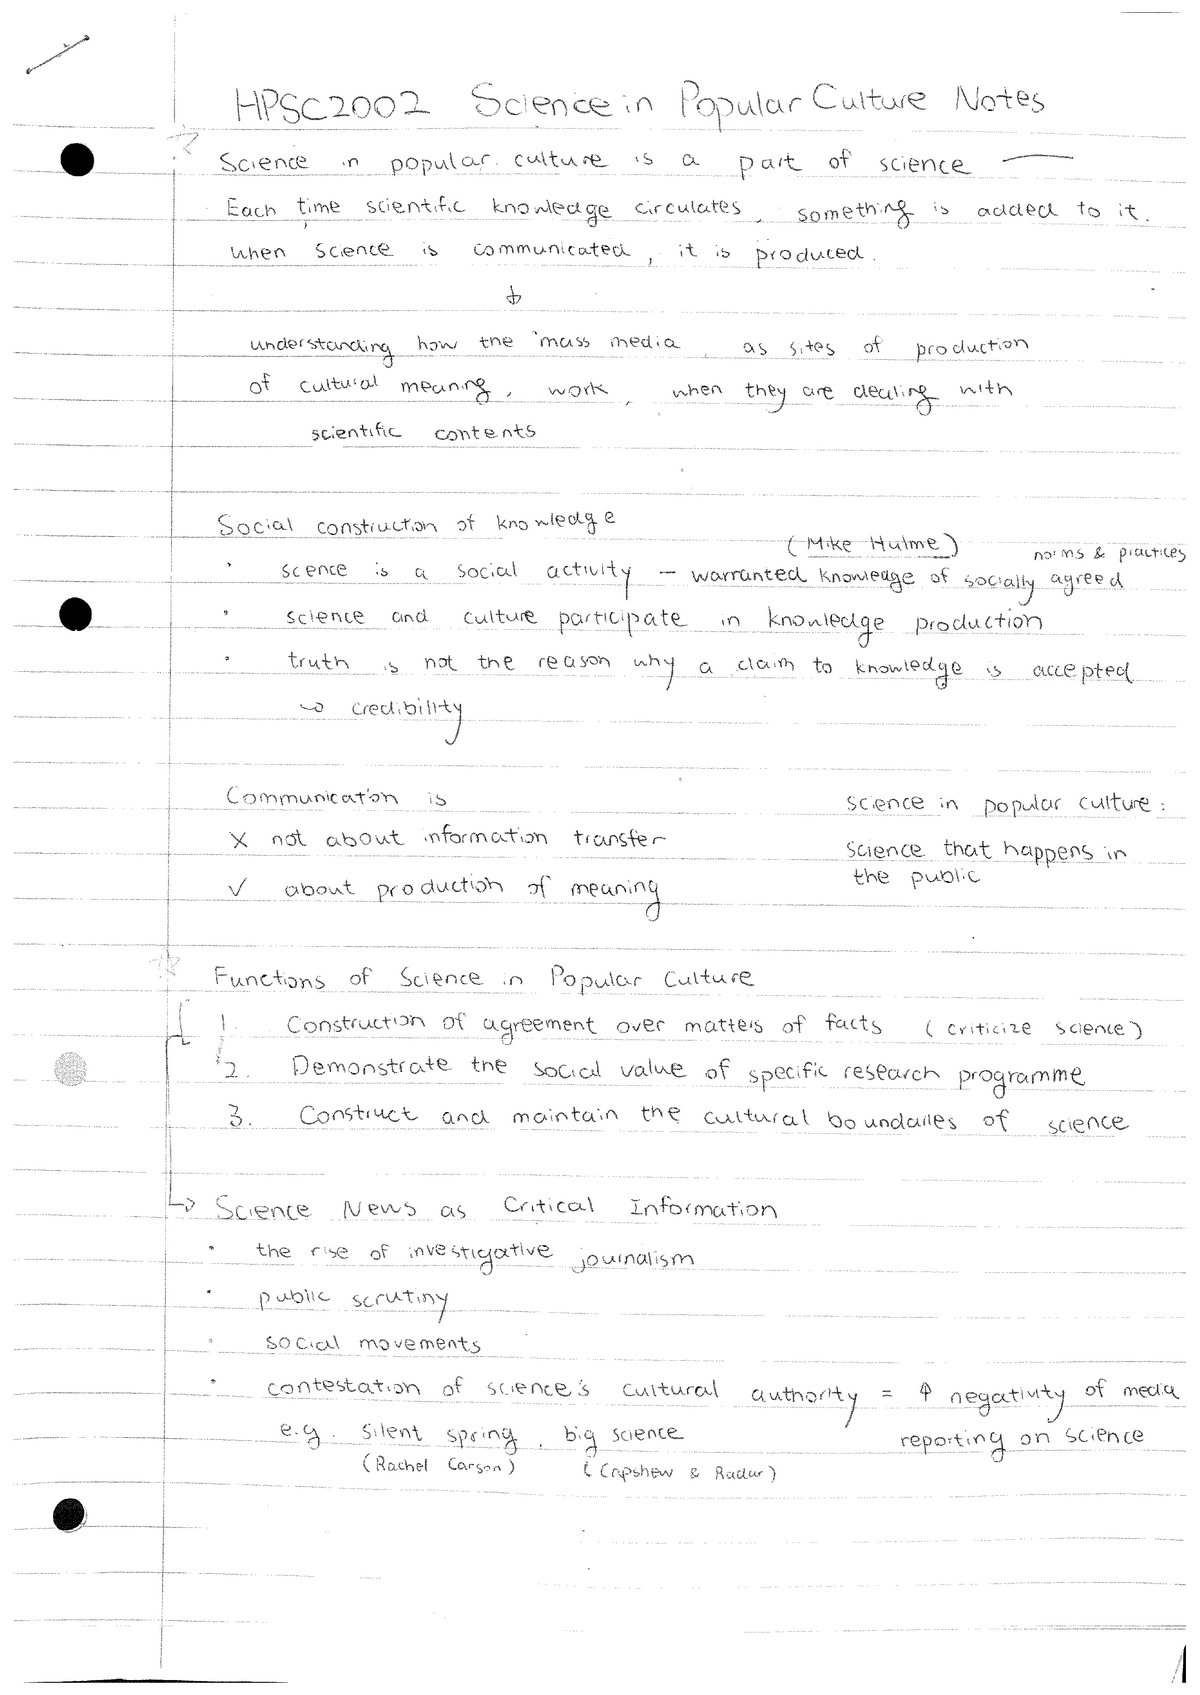 HPSC2002 Science in Popular Culture Notes
☆ Science in popular culture is a part of science —
Each time scientific knowledge circulates, something is added to it.
When science is communicated, it is produced.
↓
understanding how the mass media, as sites of production
of cultural meaning, work, when they are dealing with
scientific contents
Social construction of knowledge
(Mike Hulme) norms & practices
• scence is a social activity – warranted knowledge of socially agreed
• science and culture participate in knowledge production
• truth is not the reason why a claim to knowledge is accepted
↪ credibility
Communication is
X not about information transfer
✓ about production of meaning
science in popular culture:
science that happens in
the public
☆ Functions of Science in Popular Culture
1. Construction of agreement over matters of facts (criticize science)
2. Demonstrate the social value of specific research programme
3. Construct and maintain the cultural boundaries of science
↳ Science News as Critical Information
• the rise of investigative journalism
• public scrutiny
• social movements
• contestation of science's cultural authority = ↑ negativity of media
e.g. silent spring, big science reporting on science
(Rachel Carson) (Capshew & Radar)